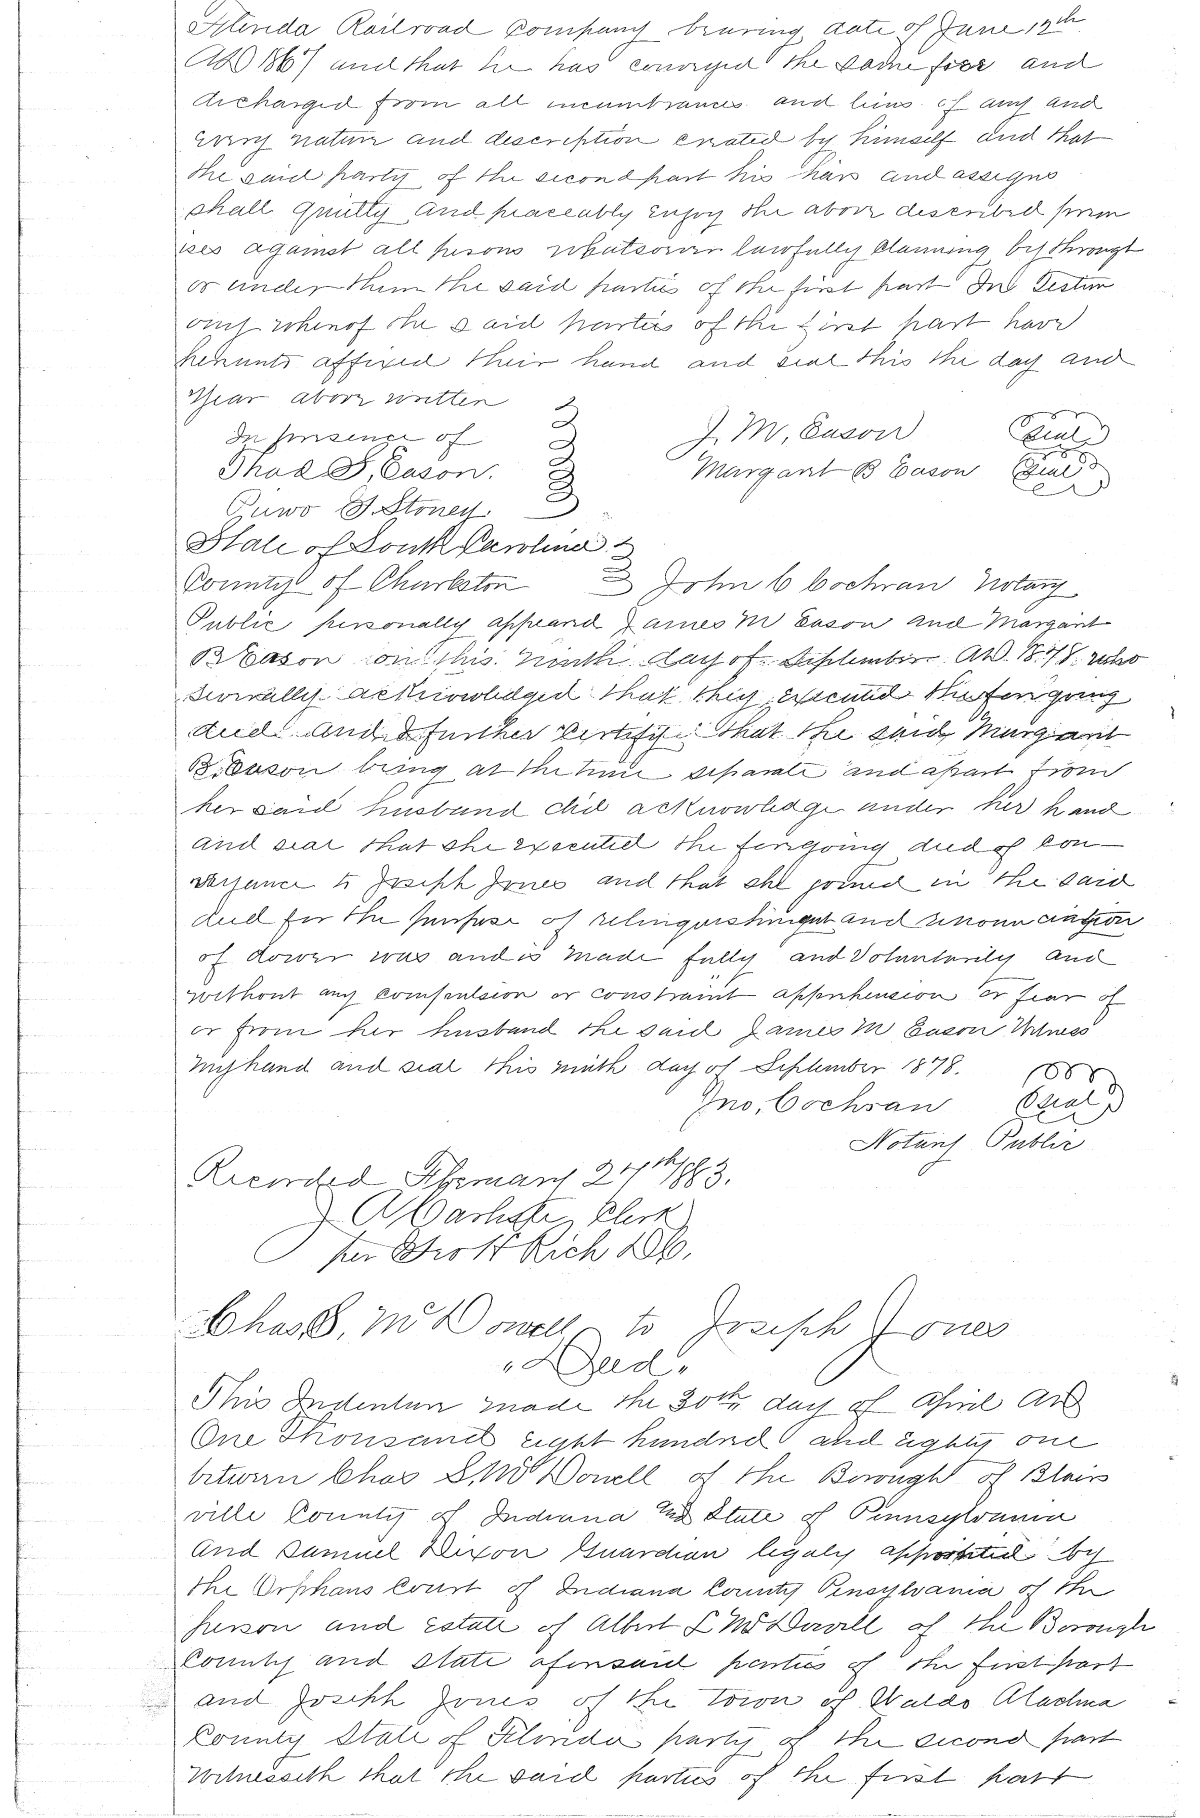 Florida Railroad Company bearing date of June 12th
AD 1867 and that he has conveyed the same free and
discharged from all incumbrances and liens of any and
every nature and description created by himself and that
the said party of the second part his heirs and assigns
shall quietly and peaceably enjoy the above described prem
ises against all persons whatsoever lawfully claiming by through
or under them the said parties of the first part In Testim
ony whereof the said parties of the first part have
hereunto affixed their hand and seal this the day and
Year above written
In presence of J. M. Eason Seal
Thad S. Eason. Margaret B Eason Seal
J. Stoney
State of South Carolina
County of Charleston John C Cochran Notary
Public personally appeared James M Eason and Margaret
B Eason on this ninth day of September AD. 1878. who
severally acknowledged that they executed the foregoing
deed. And I further Certify that the said Margaret
B. Eason being at the time separate and apart from
her said husband did acknowledge under her hand
and seal that she executed the foregoing deed of Con-
veyance to Joseph Jones and that she joined in the said
deed for the purpose of relinquishment and renounciation
of dower was and is made fully and Voluntarily and
without any compulsion or constraint apprehension or fear of
or from her husband the said James M Eason Witness
my hand and seal this ninth day of September 1878.
Jno, Cochran Seal
Notary Public
Recorded February 24th 1883.
J A Carlisle, Clerk
per H Rich D.C.
Chas S. McDowell to Joseph Jones
"Deed"
This Indenture made the 30th day of April AD
One Thousand Eight hundred and Eighty one
between Chas S. McDowell of the Borough of Blairs
ville County of Indiana and State of Pennsylvania
and Samuel Dixon Guardian legaly appointed by
the Orphans Court of Indiana County Pensylvania of the
person and Estate of Albert L McDowell of the Borough
County and State aforesaid parties of the first part
and Joseph Jones of the town of Waldo Alachua
County State of Florida party of the second part
Witnesseth that the said parties of the first part